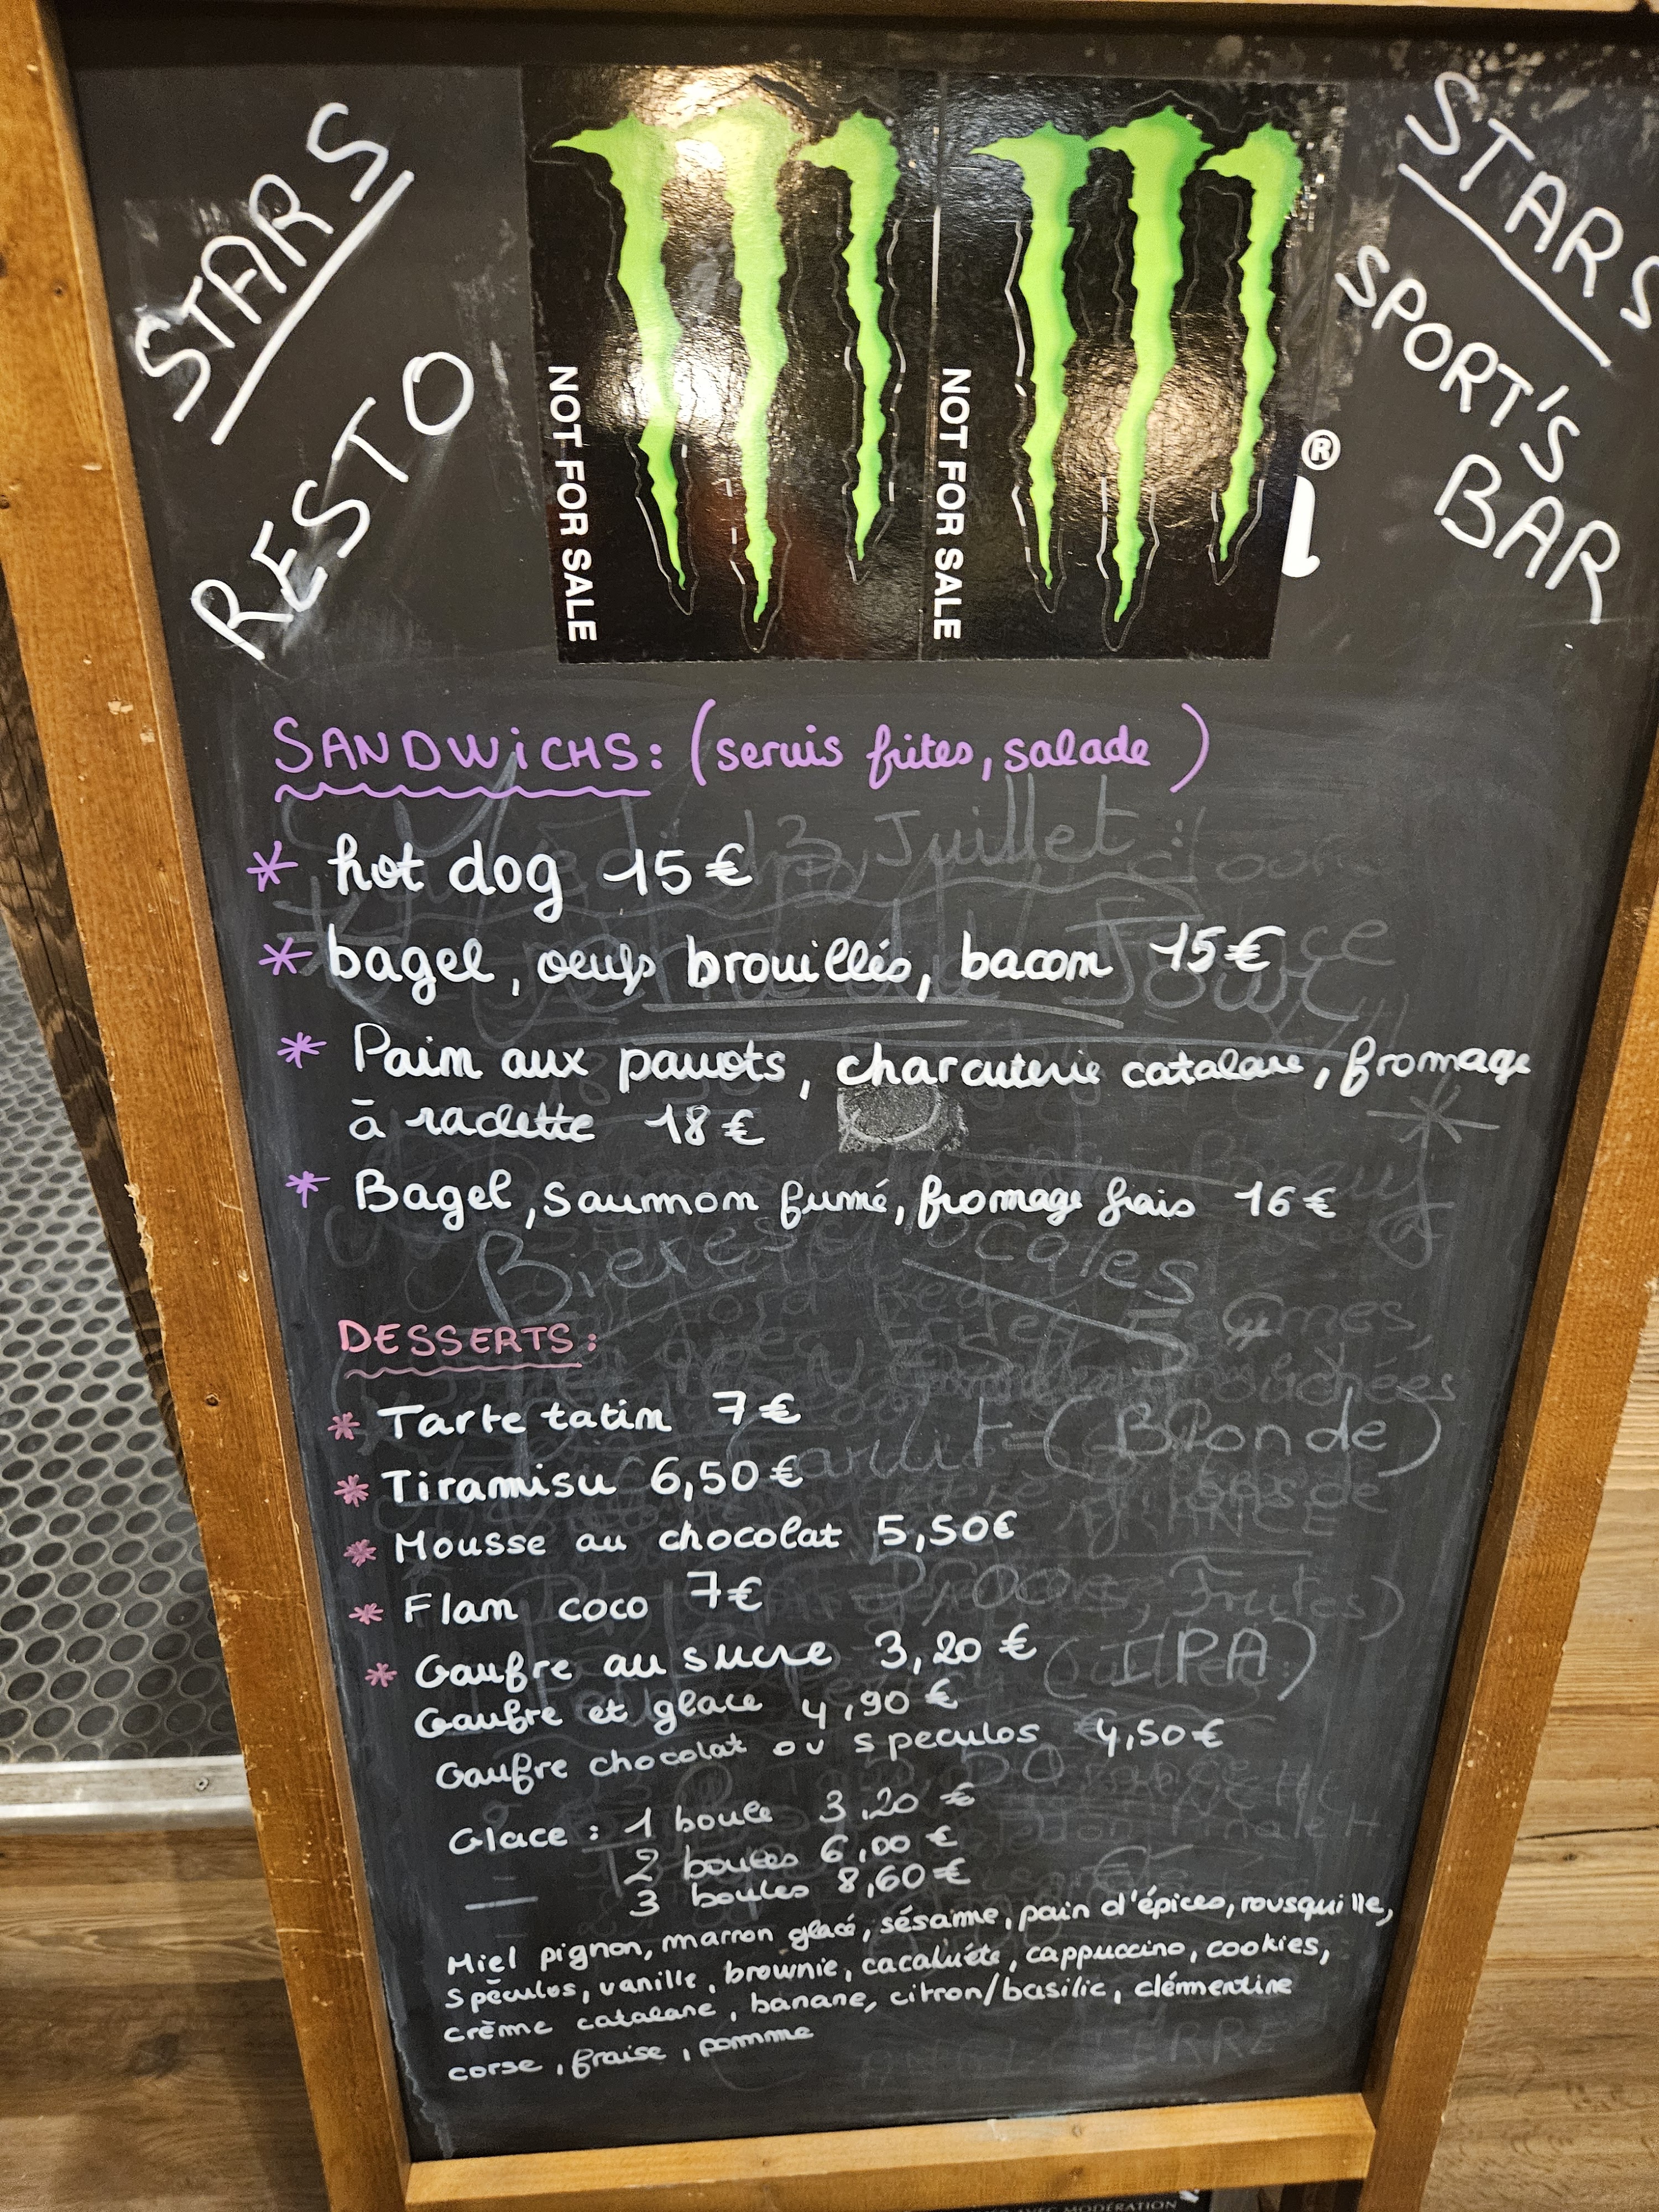 STARS
RESTO
STARS
SPORT'S
BAR
NOT FOR SALE
NOT FOR SALE
®
SANDWiCHS: (servis frites, salade)
* hot dog 15€
* bagel, oeufs brouillés, bacon 15€
* Pain aux pavots, charcuterie catalane, fromage
à raclette 18€
* Bagel, saumon fumé, fromage frais 16€
Bieres locales
DESSERTS:
* Tarte tatin 7€
(Blonde)
* Tiramisu 6,50€
* Mousse au chocolat 5,50€
* Flam coco 7€
* Gaufre au sucre 3,20€
(IPA)
Gaufre et glace 4,90€
Gaufre chocolat ou speculos 4,50€
Glace : 1 boule 3,20€
2 boules 6,00€
3 boules 8,60€
Miel pignon, marron glacé, sésame, pain d'épices, rousquille,
Spéculos, vanille, brownie, cacaluéte, cappuccino, cookies,
crème catalane, banane, citron/basilic, clémentine
corse, fraise, pomme
AVEC MODÉRATION